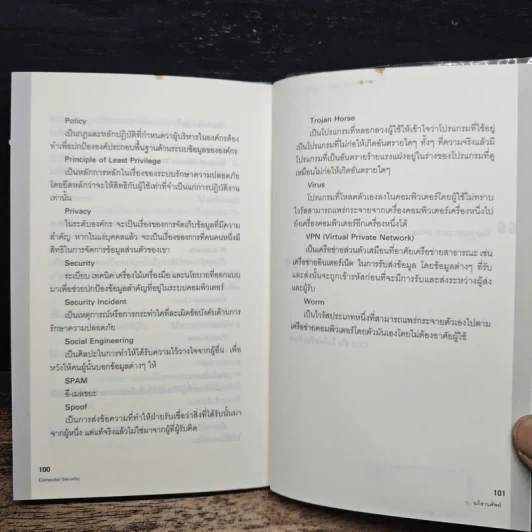 Policy
เป็นกฎและหลักปฏิบัติที่กำหนดว่าผู้บริหารในองค์กรต้อง
ทำเพื่อปกป้ององค์ประกอบพื้นฐานด้านระบบข้อมูลขององค์กร
Principle of Least Privilege
เป็นหลักการหลักในเรื่องของระบบรักษาความปลอดภัย
โดยยึดหลักว่าจะให้สิทธิกับผู้ใช้เท่าที่จำเป็นแก่การปฏิบัติงาน
เท่านั้น
Privacy
ในระดับองค์กร จะเป็นเรื่องของการจัดเก็บข้อมูลที่มีความ
สำคัญ หากในแง่บุคคลแล้ว จะเป็นเรื่องของการที่คนคนหนึ่งมี
สิทธิในการจัดการข้อมูลส่วนตัวของเขา
Security
ระเบียบ เทคนิค เครื่องไม้เครื่องมือ และนโยบายที่ออกแบบ
มาเพื่อช่วยปกป้องข้อมูลสำคัญที่อยู่ในระบบคอมพิวเตอร์
Security Incident
เป็นเหตุการณ์หรือการกระทำใดที่ละเมิดข้อบังคับด้านการ
รักษาความปลอดภัย
Social Engineering
เป็นศิลปะในการทำให้ได้รับความไว้วางใจจากผู้อื่น เพื่อ
หวังให้คนผู้นั้นบอกข้อมูลต่างๆ ให้
SPAM
อีเมลขยะ
Spoof
เป็นการส่งข้อความที่ทำให้ฝ่ายรับเชื่อว่าสิ่งที่ได้รับนั้นมา
จากผู้หนึ่ง แต่แท้จริงแล้วไม่ใช่มาจากผู้ที่ผู้รับคิด
100
Computer Security
Trojan Horse
เป็นโปรแกรมที่หลอกลวงผู้ใช้ให้เข้าใจว่าโปรแกรมที่ใช้อยู่
เป็นโปรแกรมที่ไม่ก่อให้เกิดอันตรายใดๆ ทั้งๆ ที่ความจริงแล้วมี
โปรแกรมที่เป็นอันตรายร้ายแรงแฝงอยู่ในร่างของโปรแกรมที่ดู
เหมือนไม่ก่อให้เกิดอันตรายใดๆ
Virus
โปรแกรมที่โหลดตัวเองลงในคอมพิวเตอร์โดยผู้ใช้ไม่ทราบ
ไวรัสสามารถแพร่กระจายจากเครื่องคอมพิวเตอร์เครื่องหนึ่งไป
ยังเครื่องคอมพิวเตอร์อีกเครื่องหนึ่งได้
VPN (Virtual Private Network)
เป็นเครือข่ายส่วนตัวเสมือนที่อาศัยเครือข่ายสาธารณะ เช่น
เครือข่ายอินเตอร์เน็ต ในการรับส่งข้อมูล โดยข้อมูลต่างๆ ที่รับ
และส่งนั้นจะถูกเข้ารหัสก่อนที่จะมีการรับและส่งระหว่างผู้ส่ง
และผู้รับ
Worm
เป็นไวรัสประเภทหนึ่งที่สามารถแพร่กระจายตัวเองไปตาม
เครือข่ายคอมพิวเตอร์โดยตัวมันเองโดยไม่ต้องอาศัยผู้ใช้
101
อภิธานศัพท์